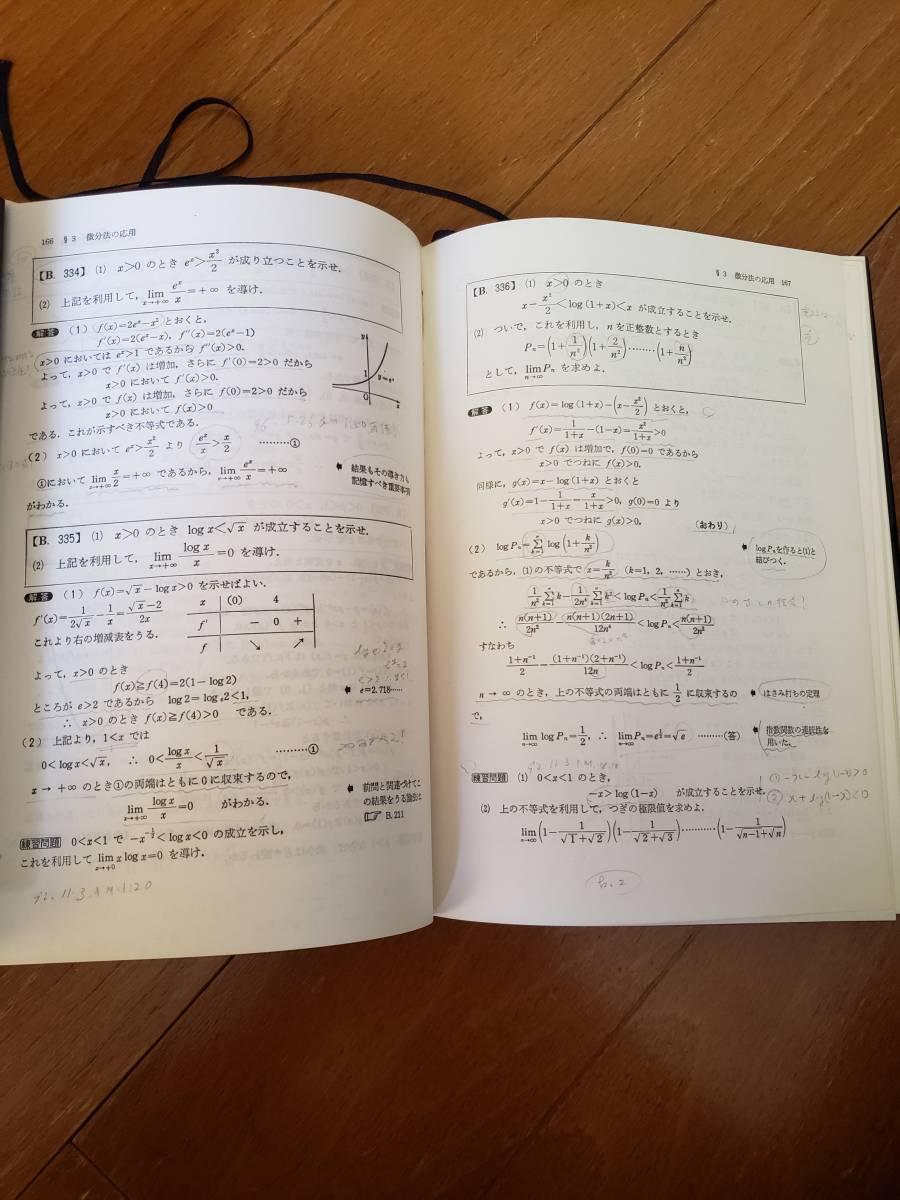 166 §3 微分法の応用
【B. 334】 (1) x>0 のとき e^x > x²/2 が成り立つことを示せ.
(2) 上記を利用して, lim_{x→+∞} e^x/x = +∞ を導け.
解答 (1) f(x)=2e^x−x² とおくと,
f′(x)=2(e^x−x), f″(x)=2(e^x−1)
x>0 においては e^x>1 であるから f″(x)>0.
よって, x>0 で f′(x) は増加, さらに f′(0)=2>0 だから
x>0 において f′(x)>0.
よって, x>0 で f(x) は増加, さらに f(0)=2>0 だから
x>0 において f(x)>0
である. これが示すべき不等式である.
y
1
y=e^x
O
x
(2) x>0 において e^x > x²/2 より e^x/x > x/2 ………①
①において lim_{x→+∞} x/2 = +∞ であるから, lim_{x→+∞} e^x/x = +∞
がわかる.
結果もその導き方も
記憶すべき重要事項
【B. 335】 (1) x>0 のとき log x<√x が成立することを示せ.
(2) 上記を利用して, lim_{x→+∞} log x/x = 0 を導け.
解答 (1) f(x)=√x−log x>0 を示せばよい.
f′(x)=1/(2√x)−1/x=(√x−2)/(2x)
これより右の増減表をうる.
x (0) 4
f′ − 0 +
f ↘ ↗
よって, x>0 のとき
f(x)≧f(4)=2(1−log 2)
ところが e>2 であるから log 2=log_e 2<1,
∴ x>0 のとき f(x)≧f(4)>0 である.
e=2.718……
(2) 上記より, 1<x では
0<log x<√x, ∴ 0<log x/x<1/√x ………①
x → +∞ のとき①の両端はともに 0 に収束するので,
lim_{x→+∞} log x/x = 0 がわかる.
前問と関連づけてこ
の結果をうる論法に
☞ B. 211
練習問題 0<x<1 で −x^{−1/2}<log x<0 の成立を示し,
これを利用して lim_{x→+0} x log x=0 を導け.
§3 微分法の応用 167
【B. 336】 (1) x>0 のとき
x−x²/2<log(1+x)<x が成立することを示せ.
(2) ついで, これを利用し, n を正整数とするとき
P_n=(1+1/n²)(1+2/n²)………(1+n/n²)
として, lim_{n→∞} P_n を求めよ.
解答 (1) f(x)=log(1+x)−(x−x²/2) とおくと,
f′(x)=1/(1+x)−(1−x)=x²/(1+x)>0
よって, x>0 で f(x) は増加で, f(0)=0 であるから
x>0 でつねに f(x)>0.
同様に, g(x)=x−log(1+x) とおくと
g′(x)=1−1/(1+x)=x/(1+x)>0, g(0)=0 より
x>0 でつねに g(x)>0. (おわり)
(2) log P_n=Σ_{k=1}^{n} log(1+k/n²)
であるから, (1)の不等式で x=k/n² (k=1, 2, ……) とおき,
log P_nを作ると(1)と
結びつく.
1/n² Σ_{k=1}^{n} k−1/(2n⁴) Σ_{k=1}^{n} k²<log P_n<1/n² Σ_{k=1}^{n} k
∴ n(n+1)/(2n²)−n(n+1)(2n+1)/(12n⁴)<log P_n<n(n+1)/(2n²)
すなわち
(1+n⁻¹)/2−(1+n⁻¹)(2+n⁻¹)/(12n)<log P_n<(1+n⁻¹)/2
n → ∞ のとき, 上の不等式の両端はともに 1/2 に収束するの
で,
はさみ打ちの定理
lim_{n→∞} log P_n=1/2, ∴ lim_{n→∞} P_n=e^{1/2}=√e ………(答)
指数関数の連続性を
用いた.
練習問題 (1) 0<x<1 のとき,
−x>log(1−x) が成立することを示せ.
(2) 上の不等式を利用して, つぎの極限値を求めよ.
lim_{n→∞} (1−1/(√1+√2))(1−1/(√2+√3))…………(1−1/(√(n−1)+√n))